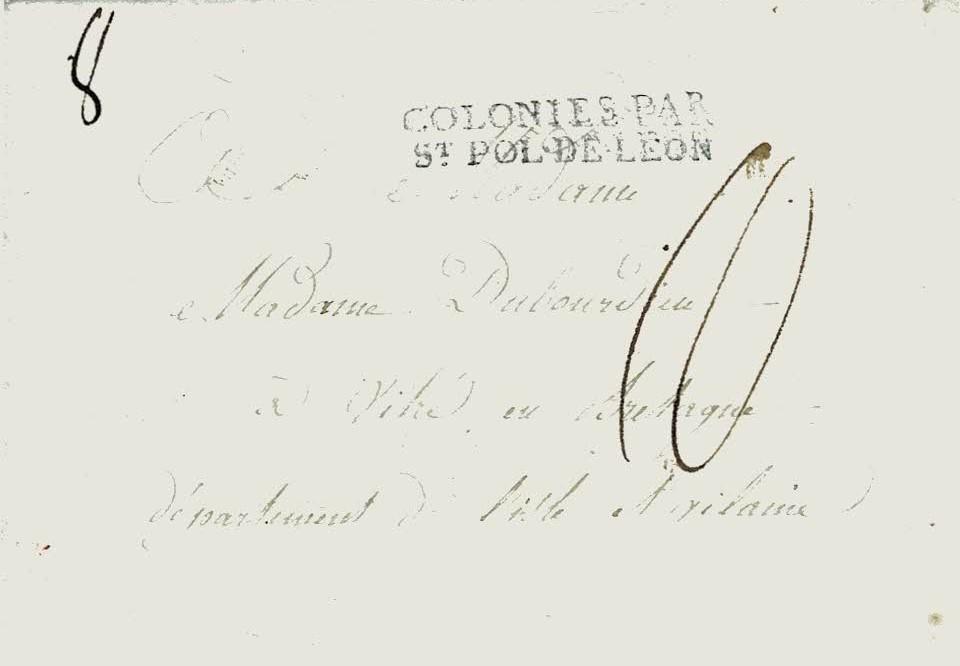 8
COLONIES PAR
ST POL-DE-LEON
Madame
Madame Dubourdieu
à Vitré en Bretagne
département d l'isle et vilaine
10